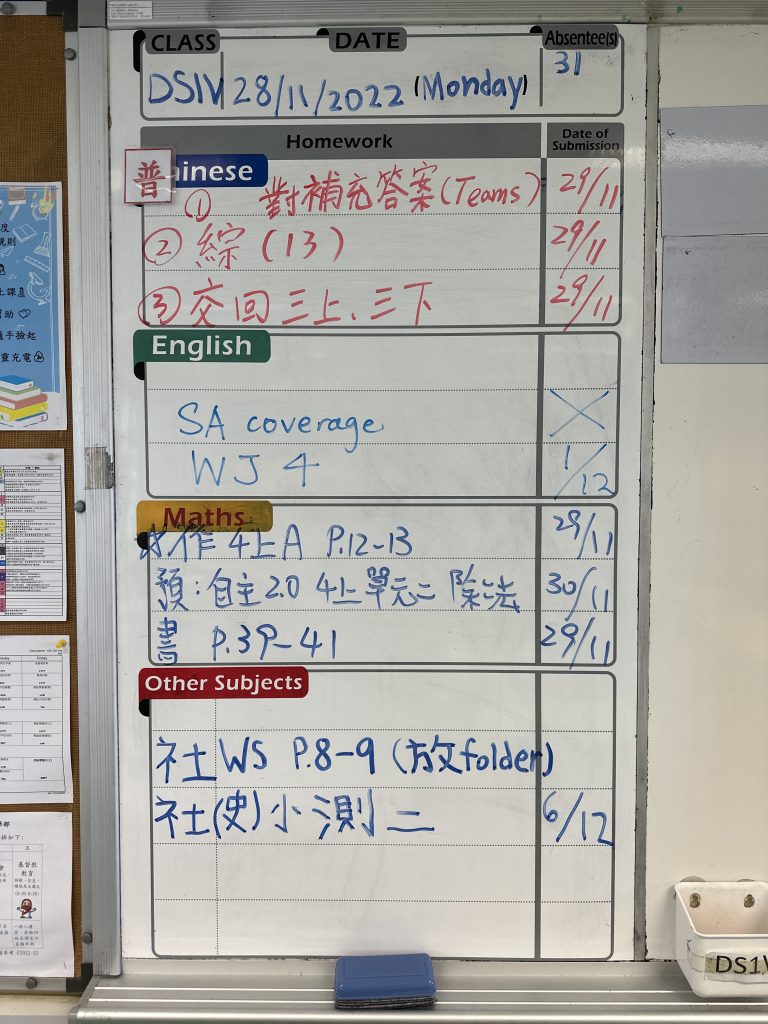 CLASS DATE Absentee(s)
DS1V 28/11/2022 (Monday) 31
Homework Date of Submission
普 hinese
① 對補充答案(Teams) 29/11
② 綜(13) 29/11
③ 交回三上、三下 29/11
English
SA coverage ╳
WJ 4 1/12
Maths
作 4上A P.12-13 29/11
預:自主2.0 4上單元二 除法 30/11
書 P.39-41 29/11
Other Subjects
社WS P.8-9 (放folder)
社(史)小測二 6/12
DS1V
規則
上課
隨手撿起
靈充電
基督教
教育